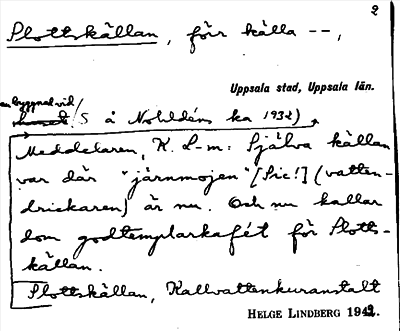 2
Slottskällan, förr källa --,
Uppsala stad, Uppsala län.
en byggnad vid
huset /S å Nohldéns ka 1932)
Meddelaren, K. L-m: Själva källan
var där "järnmojen" [Sic!] (vatten-
drickaren) är nu. Och nu kallar
dom godtemplarkafét för Slotts-
källan.
Slottskällan, Kallvattenkuranstalt
HELGE LINDBERG 1942.